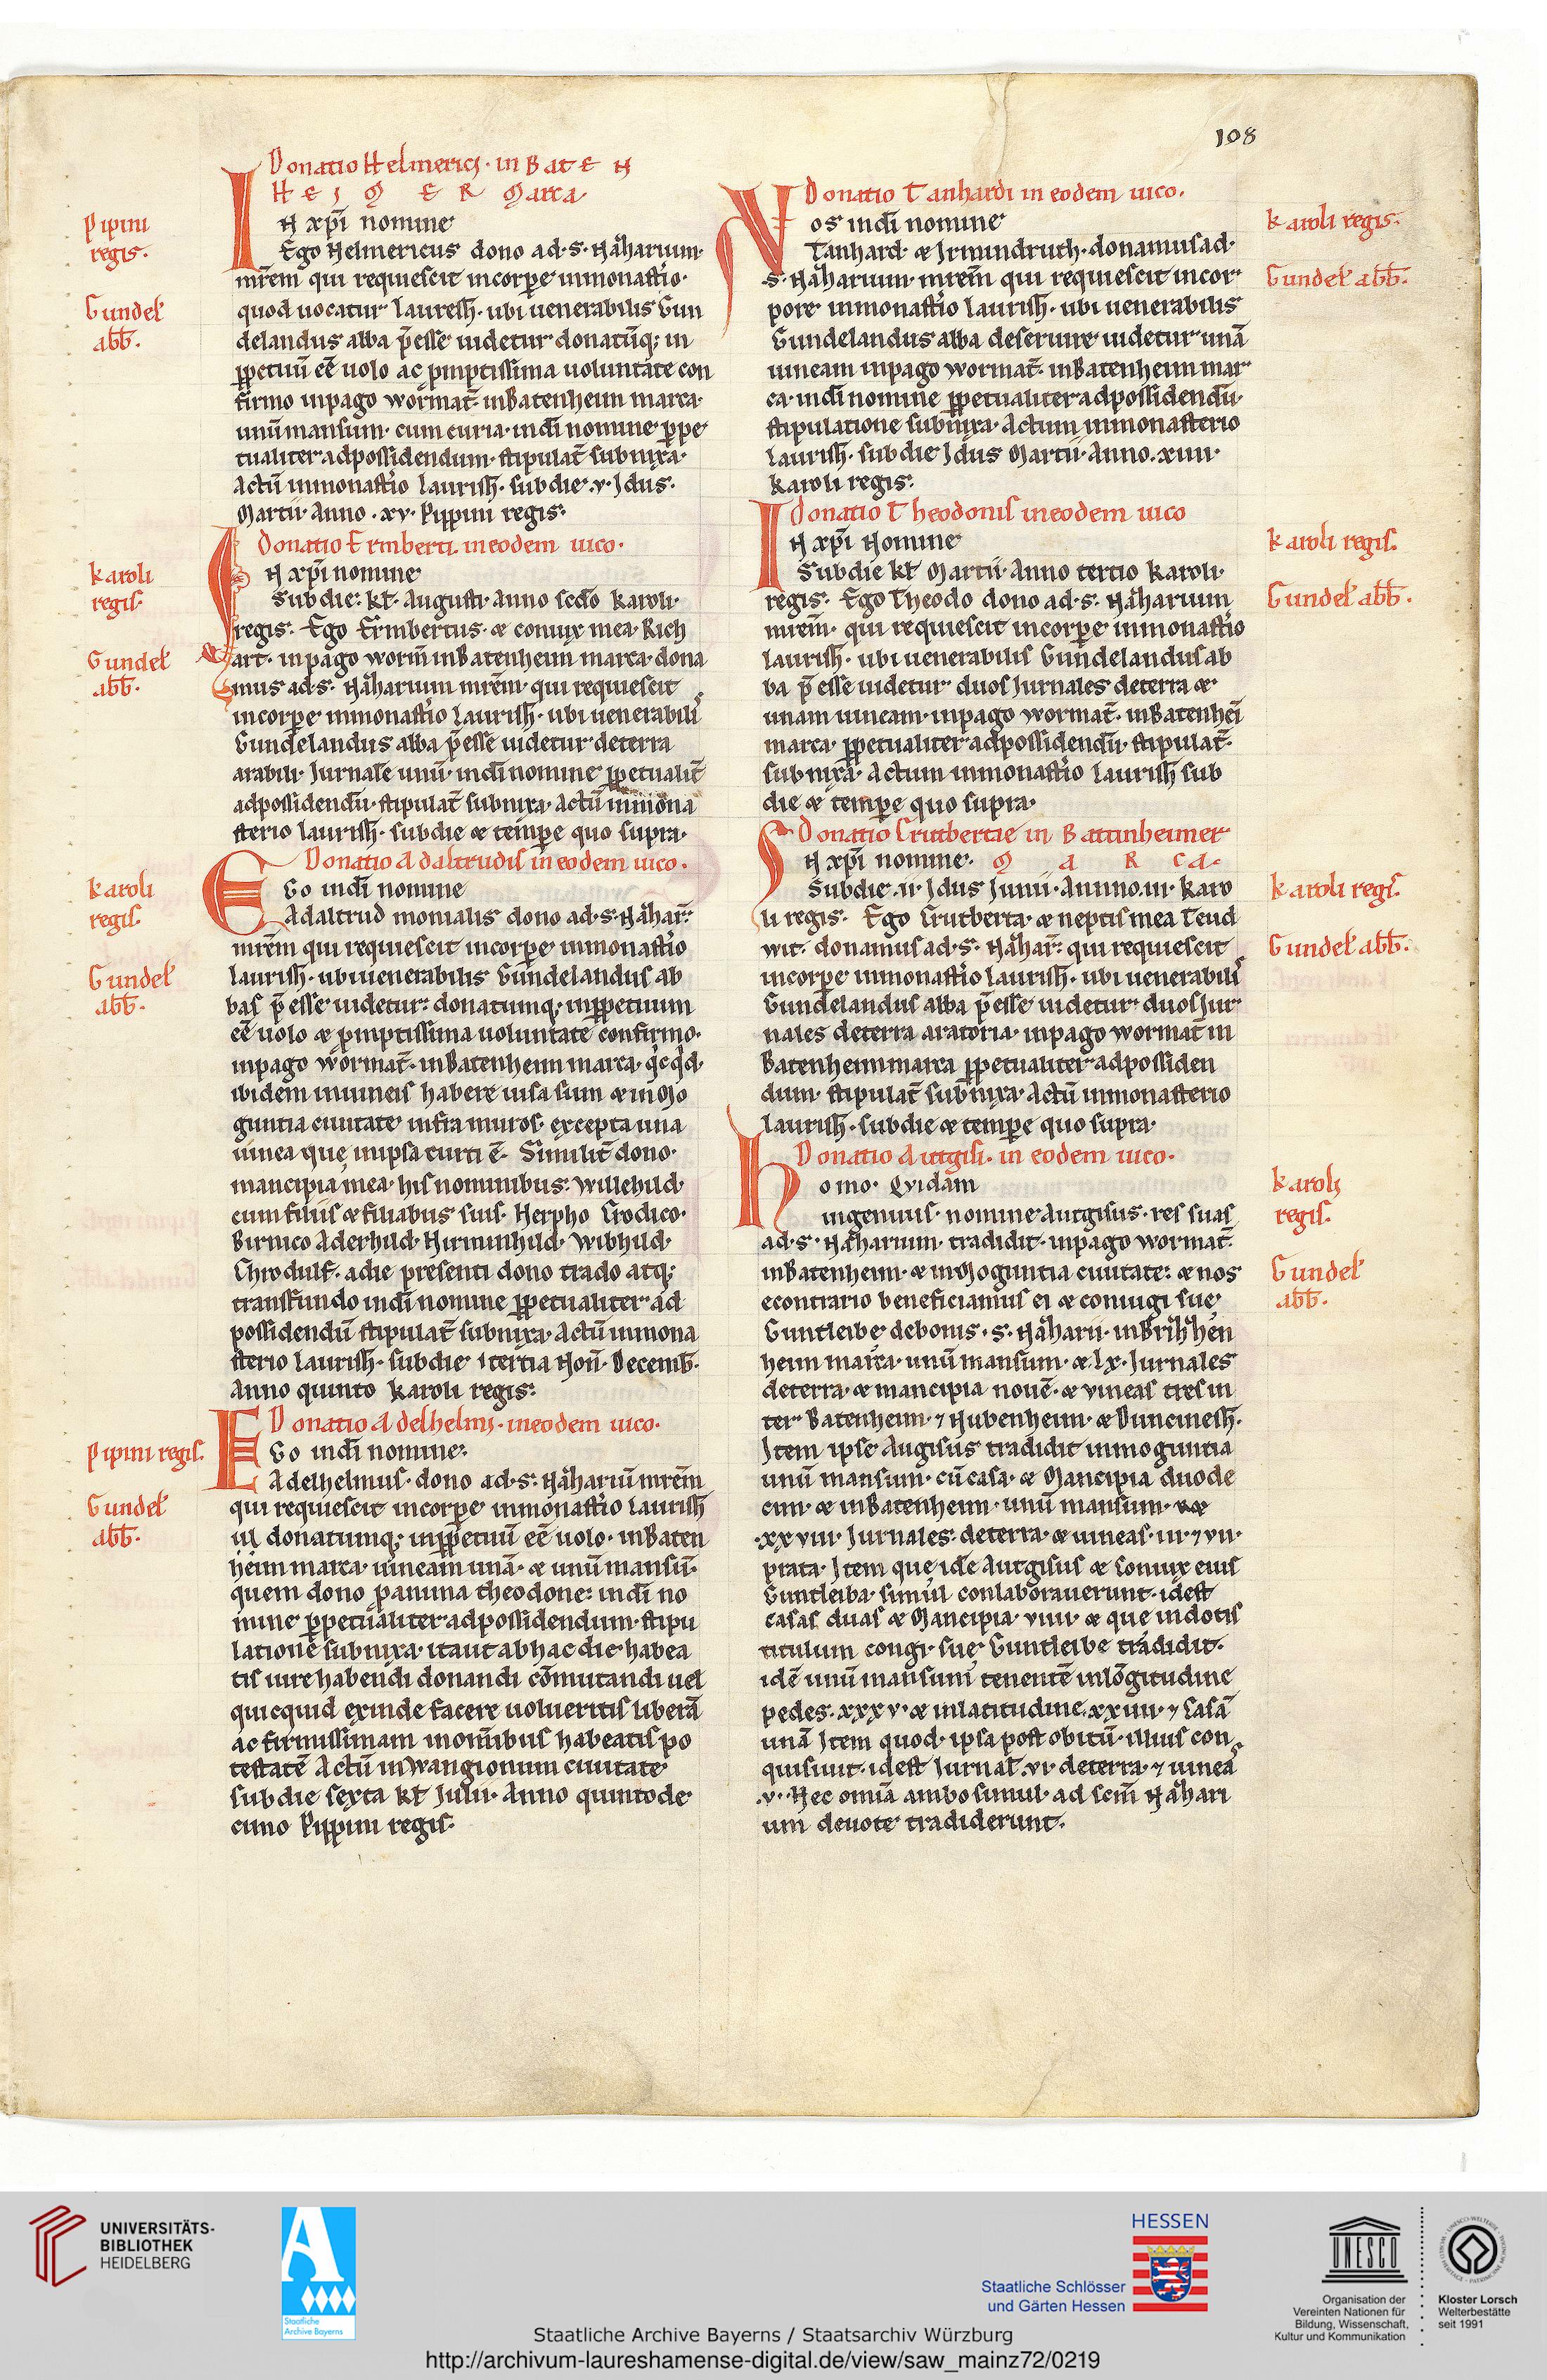 108
Donatio Helmerici · in Baten
heimer Marca
Pipini
regis.
Gundel
abb̄.
IN xp̄i nomine
Ego Helmericus dono ad · s · Naͣharium
mr̄em qui requiescit in corpe in monast̄io ·
quod uocatur lauresh̄ · ubi uenerabilis Gun
delandus abba p̄esse uidetur donatūq; in
ꝑpetuū eē uolo ac promptissima uoluntate con
firmo in pago wormat̄ · in Batenheim marca ·
unū mansum · cum curia · in dī nomine ꝑpe
tualiter ad possidendum · stipulat̄ subnixa ·
Actū in monast̄io laurish̄ · sub die · v · Idus ·
Martii · Anno · xv · Pippini regis ·
Donatio Ermberti · in eodem uico ·
karoli
regis
Gundel
abb̄.
IN xp̄i nomine
Sub die · kl̄ · Augusti · anno sc̄do karoli ·
regis · Ego Ermbertus · & coniux mea · Rich
art · in pago worm̄ in Batenheim marca · dona
mus ad · s · Naͣharium mr̄em · qui requiescit
in corpe in monast̄io laurish̄ · ubi uenerabilis
Gundelandus abba p̄esse uidetur de terra
arabili · Jurnale unū · in dī nomine ꝑpetualit̄
ad possidendū · stipulat̄ subnixa · Actū in mona
sterio laurish̄ · sub die & tempe quo supra ·
Donatio Adaltrudis in eodem uico ·
karoli
regis
Gundel
abb̄.
EGo in dī nomine
Adaltrud monialis dono ad · s · Naͣhar̄
mr̄em qui requiescit in corpe in monast̄io
laurish̄ · ubi uenerabilis Gundelandus ab
bas p̄esse uidetur · donatumq; in ꝑpetuum
eē uolo & promptissima uoluntate confirmo ·
in pago wormat̄ · in Batenheim marca · qͥcqͥd
ibidem in uineis habere uisa sum & in Mo
guntia ciuitate infra muros · excepta una
uinea quę in ipsa curti ē · Similit̄ dono ·
mancipia mea · his nominibus · willehild ·
cum filiis & filiabus suis · Herpho Crodico ·
Birnico Aderhild · Hirminhild · wibhild ·
Chrodulf · a die presenti dono trado atq;
transfundo in dī nomine ꝑpetualiter ad
possidendū stipulat̄ subnixa · Actū in mona
sterio laurish̄ · sub die · tertia Non̄ · Decemb̄ ·
Anno quinto karoli regis ·
Donatio Adelhelmi · in eodem uico ·
Pipini regis.
Gundel
abb̄.
EGo in dī nomine ·
Adelhelmus · dono ad · s · Naͣhariū mr̄em
qui requiescit in corpe in monast̄io laurish̄
donatumq; in ꝑpetuū eē uolo · in Baten
heim marca · uineam unā · & unū mansū ·
quem dono p̄ anima theodone · in dī no
mine ꝑpetualiter ad possidendum · stipu
latione subnixa · ita ut ab hac die habea
tis iure habendi donandi cōmutandi uel
quicquid exinde facere uolueritis liberā
ac firmissimam in omnibus habeatis po
testatē Actū in Wangionum ciuitate
sub die sexta kl̄ Julii · Anno quinto de
cimo Pippini regis ·
Donatio Tanhardi in eodem uico ·
karoli regis ·
Gundel abb̄.
NOs in dī nomine
Tanhard · & Irmindruth · donamus ad ·
s · Naͣharium · mr̄em qui requiescit in cor
pore in monast̄io laurish̄ · ubi uenerabilis
Gundelandus abba deseruire uidetur unā
uineam in pago wormat̄ · in Batenheim mar
ca · in dī nomine ꝑpetualiter ad possidendū ·
stipulatione subnixa · Actum in monasterio
laurish̄ · sub die Idus Martii · Anno · xiiii ·
karoli regis ·
Donatio Theodonis in eodem uico
karoli regis.
Gundel abb̄.
IN xp̄i Nomine
Sub die kl̄ Martii · Anno tertio karoli ·
regis · Ego Theodo dono ad · s · Naͣharium
mr̄em · qui requiescit in corpe in monast̄io
laurish̄ · ubi uenerabilis Gundelandus ab
ba p̄esse uidetur duos Jurnales de terra &
unam uineam · in pago wormat̄ · in Batenheī
marca · ꝑpetualiter ad possidendū · stipulat̄ ·
subnixa · Actum in monast̄io laurish̄ sub
die & tempe quo supra ·
Donatio Crutbertę in Battinheimer
Marca ·
karoli regis.
Gundel abb̄.
IN xp̄i nomine ·
Sub die · ii · Idus Junii · Annno · iii · karo
li regis · Ego Crutberta · & neptis mea Teud
wit · donamus ad · s · Naͣhar̄ · qui requiescit
in corpe in monast̄io laurish̄ · ubi uenerabilis
Gundelandus abba p̄esse uidetur · duos Jur
nales de terra aratoria · in pago wormat̄ in
Batenheim marca ꝑpetualiter ad possiden
dum · stipulat̄ subnixa · Actū in monasterio
laurish̄ · sub die & tempe quo supra ·
Donatio Autgisi · in eodem uico ·
karoli
regis.
Gundel
abb̄.
Homo · Quidam
ingenuus · nomine Autgisus · res suas
ad · s · Naͣharium · tradidit · in pago wormat̄
in Batenheim · & in Moguntia ciuitate · & nos
econtrario beneficiamus ei & coniugi suę
Guntleibe de bonis · s · Naͣharii · in
heim marca · unū mansum · & · lx · Jurnales
de terra · & mancipia nouē · & vineas tres in
ter Batenheim · ⁊ Hubenheim · & Duncinesh̄ ·
Item ipse Augisus tradidit in moguntia
unū mansum · cū casa · & Mancipia duode
cim · & in Batenheim · unū mansum ·
· xxviii · Jurnales · de terra · & uineas · iii · ⁊ vii ·
prata · Item quę idē Autgisus & Coniux eius
Guntleiba · simul conlaborauerunt · idest
casas duas & Mancipia · viiii · & que in dotis
titulum congi · suę Guntleibe tradidit ·
idē unū mansum tenentē in lōgitudine
pedes · xxxv · & in latitudine · xxiiii · ⁊ Casā
unā Item quod · ipsa post obitū · illius con
quisiuit · idest Jurnal̄ · vi · de terra · ⁊ uineas
· v · Hec omīa ambo simul · ad sc̄m Naͣhari
um deuote tradiderunt ·
UNIVERSITÄTS-
BIBLIOTHEK
HEIDELBERG
Staatliche
Archive Bayerns
HESSEN
Staatliche Schlösser
und Gärten Hessen
UNESCO
Organisation der
Vereinten Nationen für
Bildung, Wissenschaft,
Kultur und Kommunikation
Kloster Lorsch
Welterbestätte
seit 1991
Staatliche Archive Bayerns / Staatsarchiv Würzburg
http://archivum-laureshamense-digital.de/view/saw_mainz72/0219